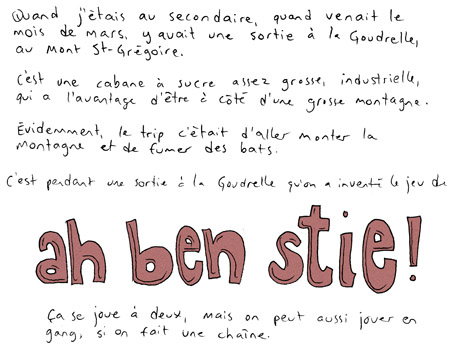 Quand j'étais au secondaire, quand venait le
mois de mars, y avait une sortie à la Goudrelle,
au Mont St-Grégoire.
C'est une cabane à sucre assez grosse, industrielle,
qui a l'avantage d'être à côté d'une grosse montagne.
Évidemment, le trip c'était d'aller monter la
montagne et de fumer des bats.
C'est pendant une sortie à la Goudrelle qu'on a inventé le jeu du
ah ben stie!
Ça se joue à deux, mais on peut aussi jouer en
gang, si on fait une chaîne.